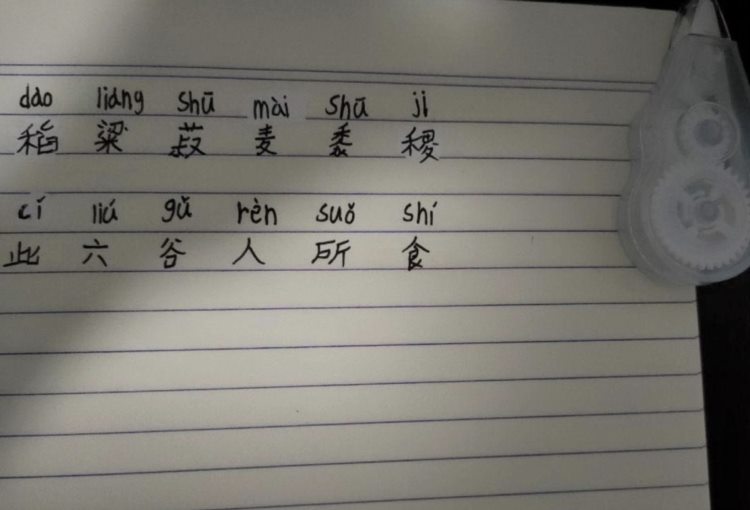 dào liáng shū mài shǔ jì
稻 粱 菽 麦 黍 稷
cí liù gǔ rén suǒ shí
此 六 谷 人 所 食